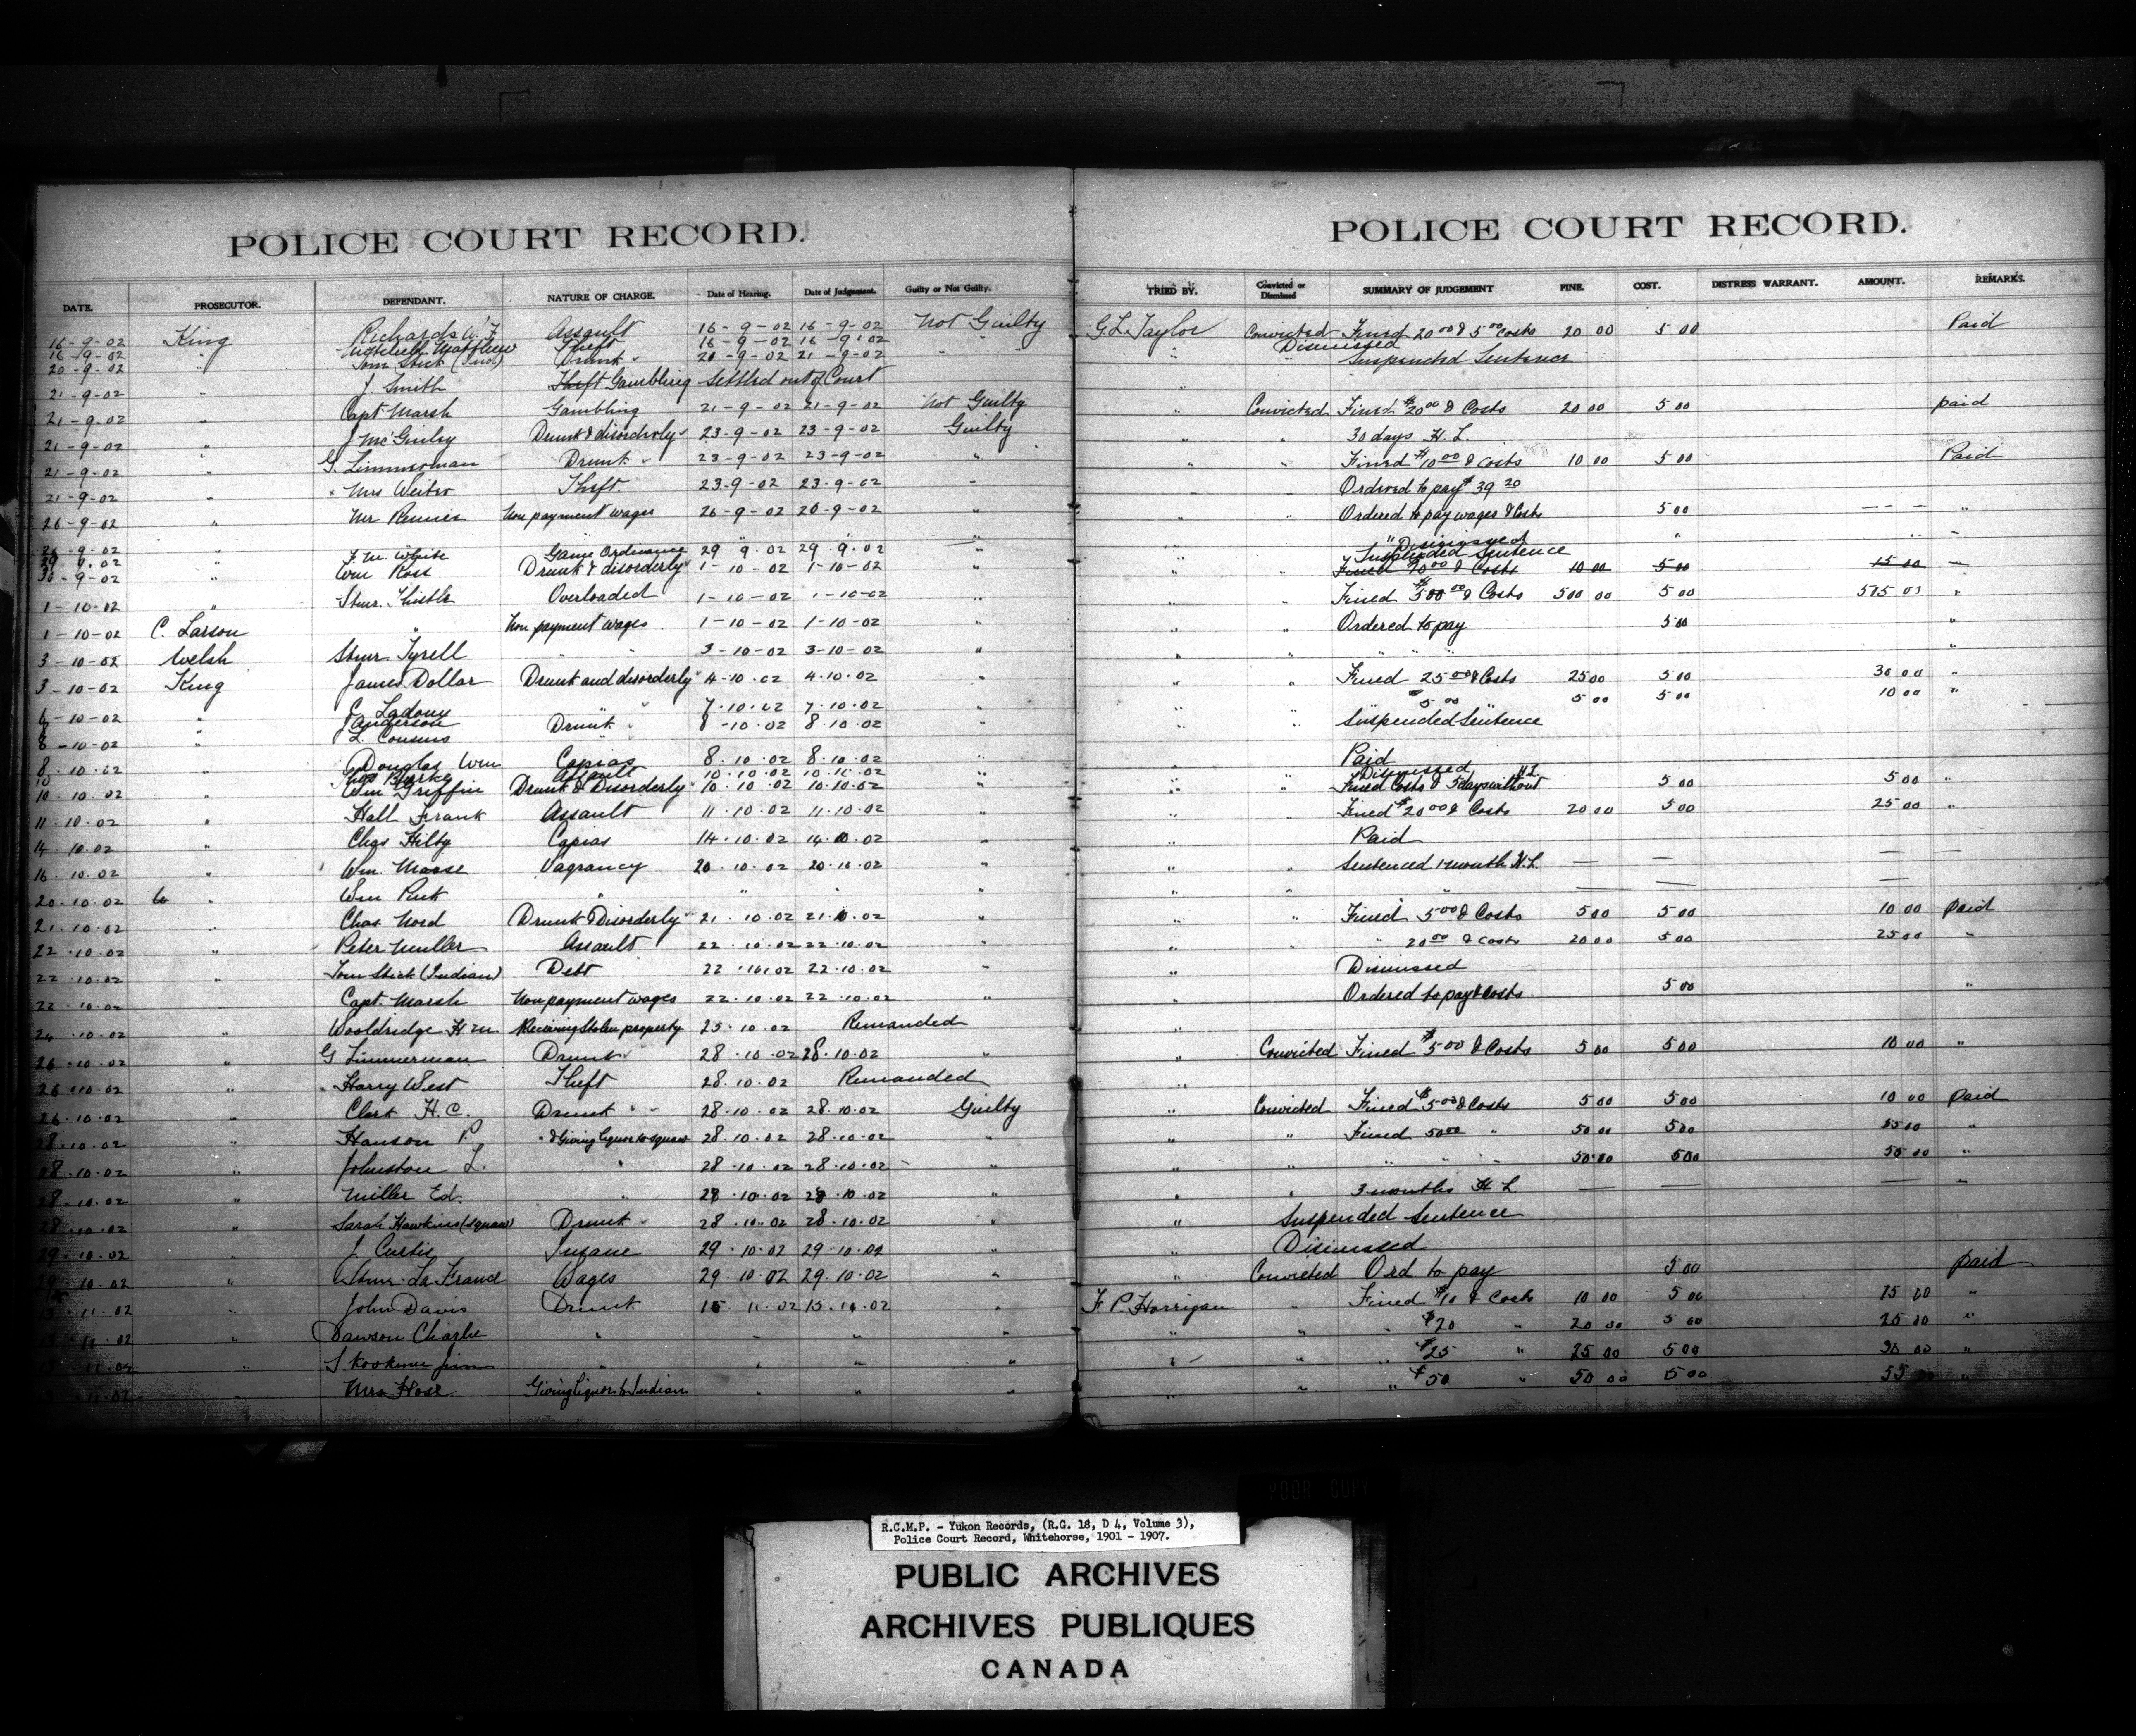 POLICE COURT RECORD.
DATE. PROSECUTOR. DEFENDANT. NATURE OF CHARGE. Date of Hearing. Date of Judgement. Guilty or Not Guilty.
16-9-02 King Richards W. F. Assault 16-9-02 16-9-02 Not Guilty
16-9-02 Matthew Theft 16-9-02 16-9-02 "
20-9-02 " Tom Stick (Ind) Drunk " 20-9-02 21-9-02 " "
21-9-02 " J. Smith Theft Gambling Settled out of Court
21-9-02 " Capt Marsh Gambling 21-9-02 21-9-02 Not Guilty
21-9-02 " J McGinley Drunk & disorderly " 23-9-02 23-9-02 Guilty
21-9-02 " G. Zimmerman Drunk " 23-9-02 23-9-02 "
21-9-02 " Mrs Theft. 23-9-02 23-9-02 "
26-9-02 " Mr Renner Non payment wages 26-9-02 26-9-02 "
" " "
29 9.02 " F. M. White Game Ordinance 29 9.02 29.9.02 "
30-9-02 " Wm Ross Drunk & disorderly " 1-10-02 1-10-02 "
1-10-02 " Stmr. Thistle Overloaded 1-10-02 1-10-02 "
1-10-02 C. Larson " Non payment wages 1-10-02 1-10-02
3-10-02 Welsh Stmr. Tyrell " " 3-10-02 3-10-02 "
3-10-02 King James Dollar Drunk and disorderly " 4-10-02 4.10.02 "
6-10-02 " C. Ladoux " " 7.10.02 7.10.02
" Anderson Drunk " 8-10.02 8.10.02 "
8-10-02 " L. Cousins "
8.10.02 " Douglas Wm Capias 8.10.02 8.10.02 "
10 Burke Assault 10.10.02 10.10.02 "
10.10.02 " Wm Griffin Drunk & Disorderly " 10.10.02 10.10.02 "
11.10.02 " Hall Frank Assault 11.10.02 11.10.02 "
14.10.02 " Chas Hilty Capias 14.10.02 14.10.02 "
16.10.02 " Wm. Moose Vagrancy 20.10.02 20.10.02 "
20.10.02 " Wm Pink " " " "
21.10.02 " Chas Nord Drunk & Disorderly " 21.10.02 21.10.02 "
22.10.02 " Peter Muller Assault 22.10.02 22.10.02 "
22.10.02 Tom Stick (Indian) Debt 22.10.02 22.10.02 "
22.10.02 Capt. Marsh Non payment wages 22.10.02 22.10.02 "
24.10.02 " Wooldridge H M. Receiving Stolen property 25.10.02 Remanded
26.10.02 " G Zimmerman Drunk " 28.10.02 28.10.02 "
26.10.02 " Harry West Theft 28.10.02 Remanded
26.10.02 " Clark H. C. Drunk " 28.10.02 28.10.02 Guilty
28.10.02 " Hanson P. " & Giving liquor to squaw 28.10.02 28.10.02 "
28.10.02 " Johnston L. " 28.10.02 28.10.02 "
28.10.02 " Miller Ed. " 28.10.02 28.10.02 "
28.10.02 " Sarah Hawkins (squaw) Drunk " 28.10.02 28.10.02 "
29.10.02 " J Curtis Insane 29.10.02 29.10.02 "
29.10.02 " Stmr. La France Wages 29.10.02 29.10.02 "
15.11.02 " John Davis Drunk 15.11.02 15.11.02 "
11.02 " Dawson Charlie " " " "
11.02 " Skookum Jim " " " "
11.02 " Mrs Hose Giving liquor to Indian " " "
POLICE COURT RECORD.
TRIED BY. Convicted or Dismissed SUMMARY OF JUDGEMENT FINE. COST. DISTRESS WARRANT. AMOUNT. REMARKS.
G L Taylor Convicted Fined 20 00 & 5 00 costs 20 00 5 00 Paid
Dismissed
" " Suspended Sentence
"
" Convicted Fined $20 00 & Costs 20 00 5 00 paid
" " 30 days H. L.
" " Fined $10 00 & costs 10 00 5 00 Paid
Ordered to pay $39 20
" " Ordered to pay wages & Costs 5 00 "
" Dismissed "
Suspended Sentence
" " Fined 10 00 & Costs 10 00 5 00 15 00
" " Fined $500 00 & Costs 500 00 5 00 "
" " Ordered to pay 5 00 "
" " " " " "
" " Fined 25 00 & Costs 25 00 5 00 30 00 "
" " $5 00 5 00 5 00 10 00 "
" " Suspended Sentence
" Paid
" Dismissed H L
" " Fined Costs & 5 days without 5 00 5 00 "
" " Fined $20 00 & Costs 20 00 5 00 25 00 "
" " Paid
" " Sentenced 1 month H. L. — — —
" " " — — —
" " Fined 5 00 & Costs 5 00 5 00 10 00 paid
" " " 20 00 & costs 20 00 5 00 25 00 "
" Dismissed
" Ordered to pay & costs 5 00 "
"
" Convicted Fined $5 00 & Costs 5 00 5 00 10 00 "
"
" Convicted Fined $5 00 & Costs 5 00 5 00 10 00 paid
" " Fined 50 00 " 50 00 5 00 55 00 "
" " " " " 50 00 5 00 55 00 "
" " 3 months H L — — — "
" Suspended Sentence
" Dismissed
" Convicted Ord to pay 5 00 paid
F. P. Horrigan " Fined $10 & Costs 10 00 5 00 15 00 "
" " " $20 " 20 00 5 00 25 00 "
" " " $25 " 25 00 5 00 30 00 "
" " " $50 " 50 00 5 00 55 00 "
R.C.M.P. - Yukon Records, (R.G. 18, D 4, Volume 3),
Police Court Record, Whitehorse, 1901 - 1907.
PUBLIC ARCHIVES
ARCHIVES PUBLIQUES
CANADA